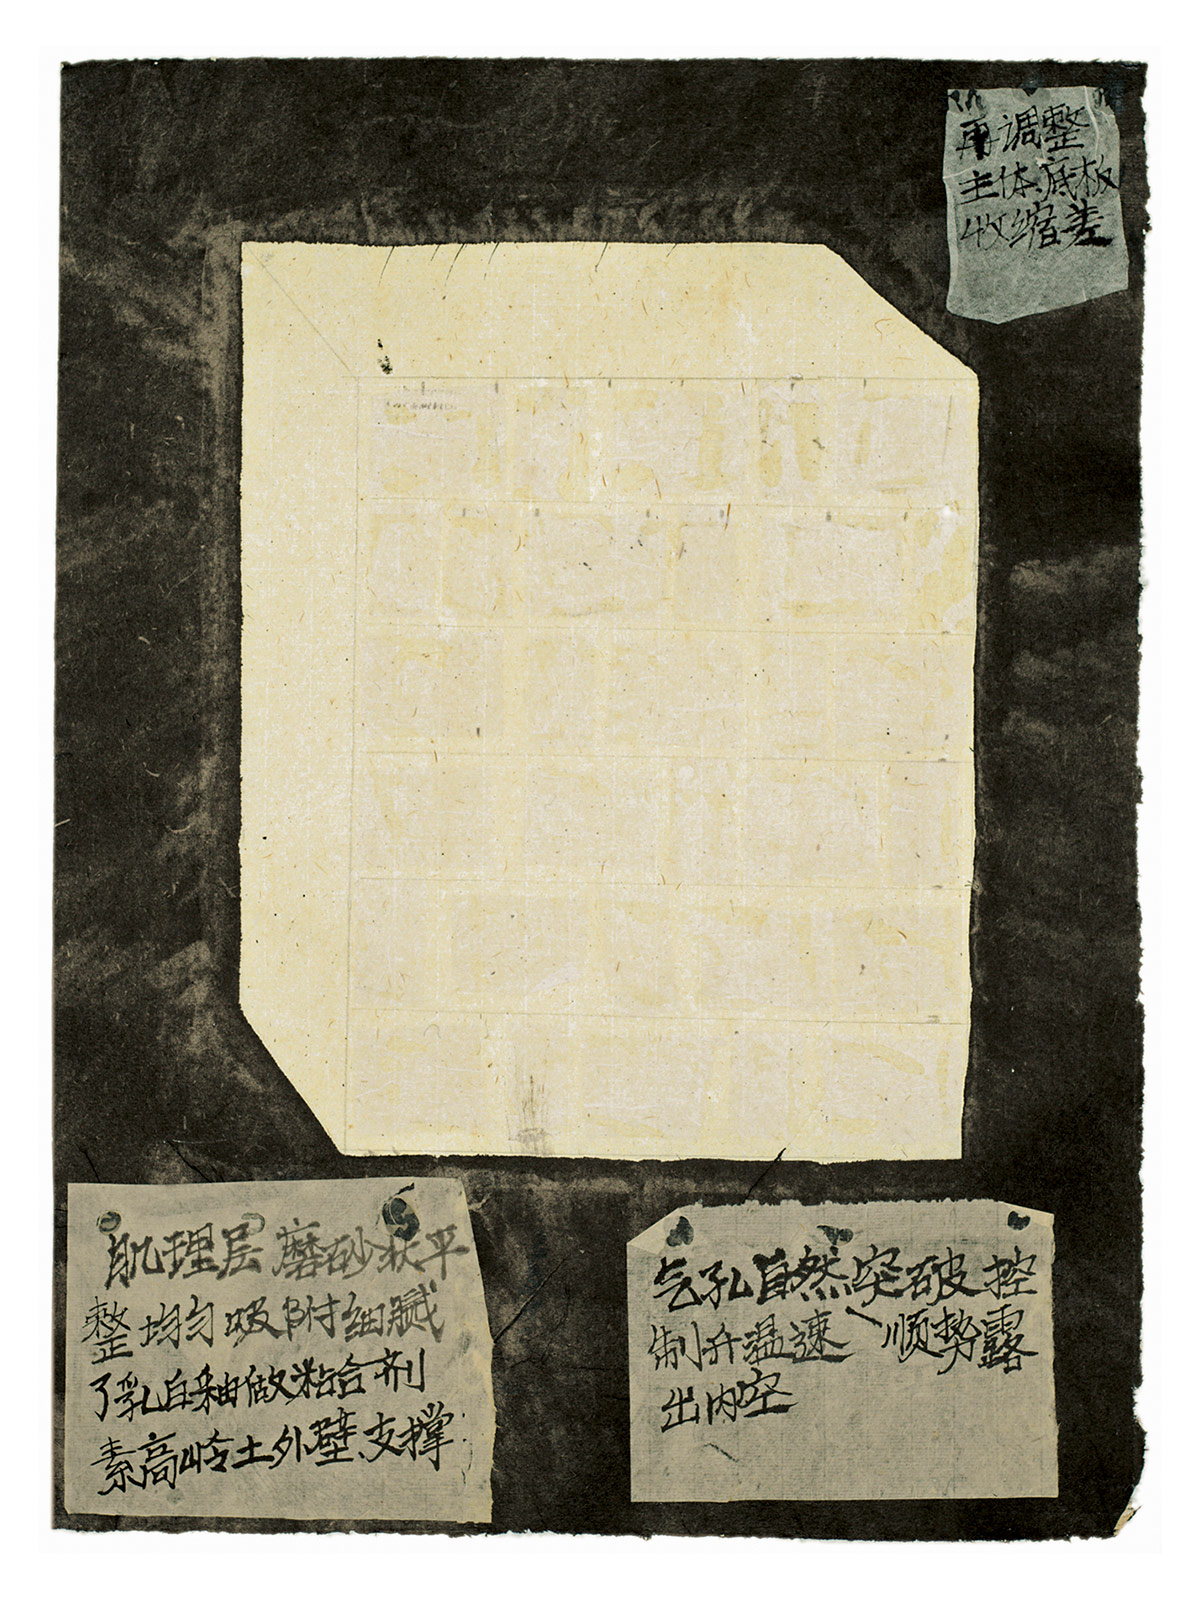 再调整
主体、底板
收缩差
肌理层磨砂状平
整均匀吸附细腻
了乳白釉做粘合剂
素高岭土外壁、支撑
气孔自然突破控
制升温速、顺势露
出内空